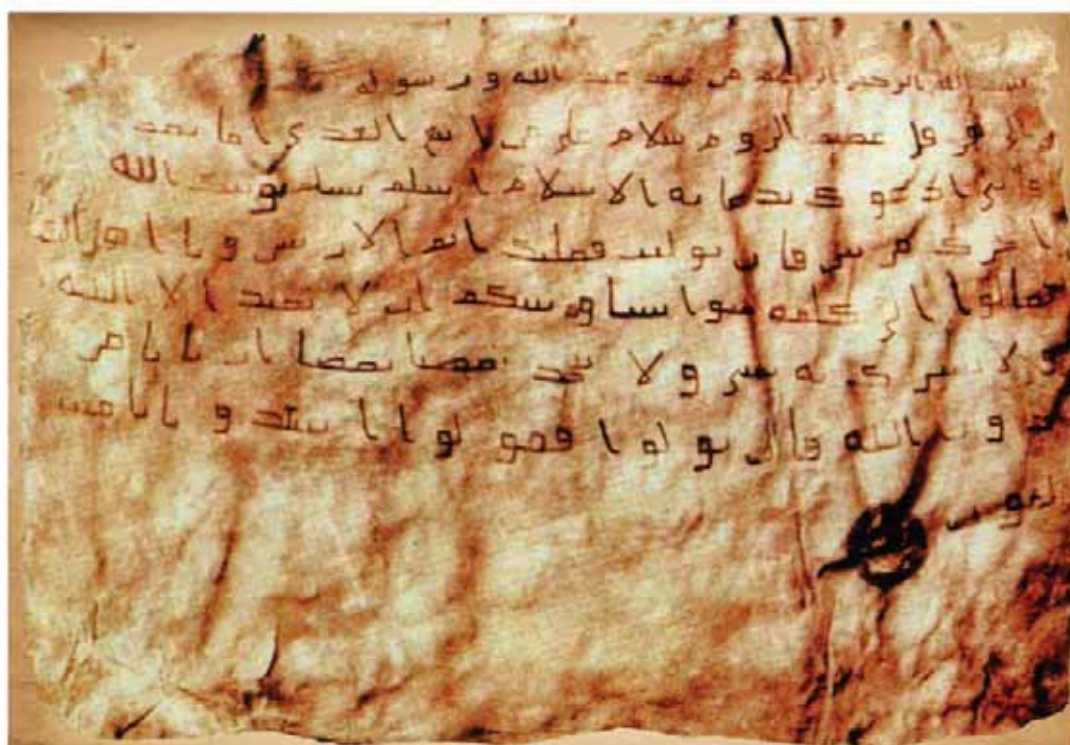 بسم الله الرحمن الرحيم من محمد عبد الله ورسوله
الى هرقل عظيم الروم سلام على من اتبع الهدى اما بعد
فانى ادعوك بدعاية الاسلام اسلم تسلم يوتك الله
اجرك مرتين فان توليت فعليك اثم الاريسين ويا اهل الكت
تعالوا الى كلمة سوا بيننا وبينكم ان لا نعبد الا الله
ولا نشرك به شى ولا يتخذ بعضنا بعضا اربابا من
دون الله فان تولوا فقولوا اشهدوا بانا مس
لمون